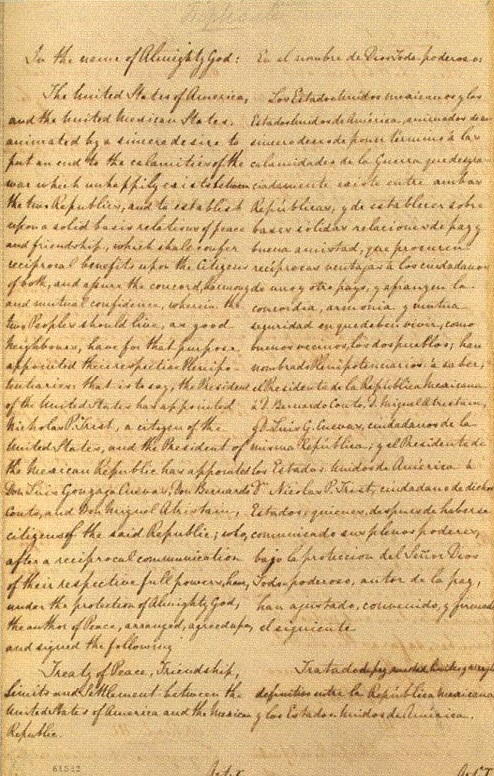 Triplicate
In the name of Almighty God:
The United States of America,
and the United Mexican States,
animated by a sincere desire to
put an end to the calamities of the
war which unhappily exists between
the two Republics, and to establish
upon a solid basis relations of peace
and friendship, which shall confer
reciprocal benefits upon the Citizens
of both, and assure the concord, harmony
and mutual confidence, wherein the
two Peoples should live, as good
Neighbours, have for that purpose
appointed their respective Plenipo-
tentiaries: that is to say, the President
of the United States has appointed
Nicholas P. Trist, a citizen of the
United States, and the President of
the Mexican Republic has appointed
Don Luis Gonzaga Cuevas, Don Bernardo
Couto, and Don Miguel Atristain,
citizens of the said Republic; who,
after a reciprocal communication
of their respective full powers, have,
under the protection of Almighty God,
the author of Peace, arranged, agreed upon,
and signed the following
Treaty of Peace, Friendship,
Limits and Settlement between the
United States of America and the Mexican
Republic.
En el nombre de Dios Todo-poderoso:
Los Estados Unidos mexicanos y los
Estados Unidos de América, animados de un
sincero deseo de poner término á las
calamidades de la Guerra que desgra-
ciadamente existe entre ambas
Repúblicas, y de establecer sobre
bases sólidas relaciones de paz y
buena amistad, que procuren
reciprocas ventajas á los ciudadanos
de uno y otro pays, y afiancen la
concordia, armonia y mutua
seguridad en que deben vivir, como
buenos vecinos, los dos pueblos; han
nombrado Plenipotenciarios: á saber,
el Presidente de la República Mexicana
á D. Bernardo Couto, D. Miguel Atristain,
y D. Luis G. Cuevas, ciudadanos de la
misma República; y el Presidente de
los Estados Unidos de América á
Dn. Nicolas P. Trist, ciudadano de dichos
Estados; quienes, despues de haberse
comunicado sus plenos poderes,
bajo la proteccion del Señor Dios
Todo-poderoso, autor de la paz,
han ajustado, convenido, y firmado
el siguiente
Tratado de paz, amistad, limites, y arreglo
definitivo entre la República mexicana
y los Estados Unidos de América.
61582